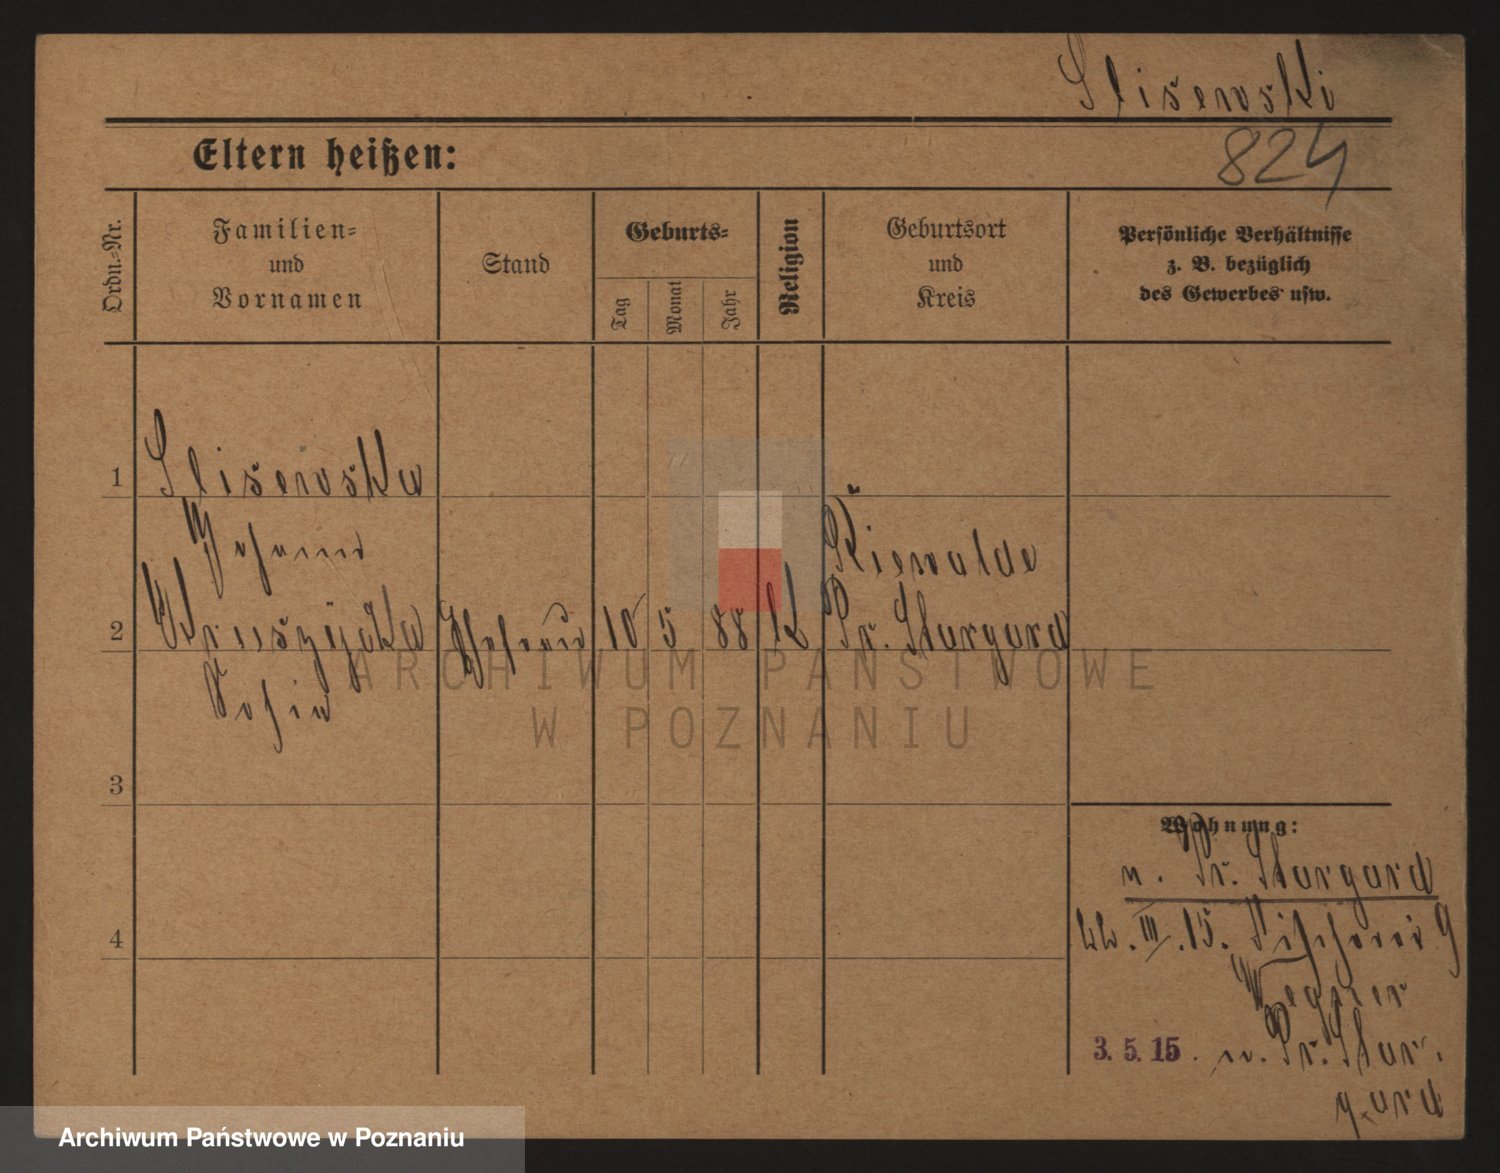 Slisewski
Eltern heißen:
824
Ordn.-Nr.
Familien-
und
Vornamen
Stand
Geburts-
Tag
Monat
Jahr
Religion
Geburtsort
und
Kreis
Persönliche Verhältnisse
z. B. bezüglich
des Gewerbes usw.
1
Slisewska
Johanna
Riewalde
2
10 5 88 K Pr. Stargard
Sofia
3
4
Wohnung:
n. Pr. Stargard
22. III. 15. Fischerei 9
Węgner
3. 5. 15. n. Pr. Star-
gard
ARCHIWUM PAŃSTWOWE
W POZNANIU
Archiwum Państwowe w Poznaniu